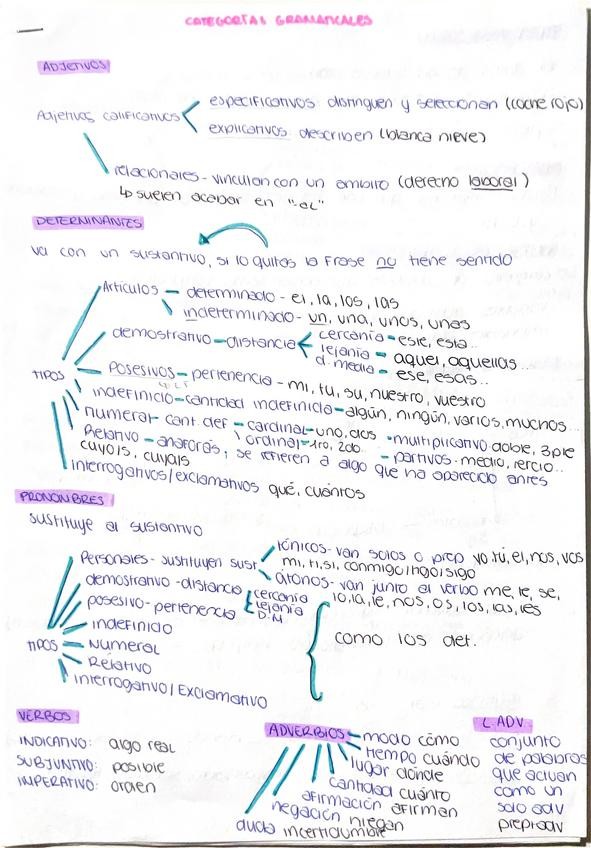 CATEGORÍAS GRAMATICALES
ADJETIVOS
Adjetivos calificativos
especificativos: distinguen y seleccionan (coche rojo)
explicativos: describen (blanca nieve)
relacionales - vinculan con un ambito (derecho laboral)
↳ suelen acabar en "al"
DETERMINANTES
va con un sustantivo, si lo quitas la frase no tiene sentido
TIPOS
Artículos - determinado - el, la, los, las
indeterminado - un, una, unos, unas
demostrativo - distancia
cercanía - este, esta...
lejanía - aquel, aquellas...
d. media - ese, esas...
POSESIVOS - pertenencia - mi, tu, su, nuestro, vuestro
indefinicio - cantidad indefinicio - algún, ningún, varios, muchos...
numeral - cant. def - cardinal - uno, dos • multiplicativo doble, 3ple
ordinal - 1ro, 2do... - partivos - medio, tercio...
Relativo - anaforás, se refieren a algo que ha aparecido antes
cuyo/s, cuya/s
interrogativos/exclamativos qué, cuántos
PRONOMBRES
sustituye al sustantivo
TIPOS
Personales - sustituyen sust
tónicos - van solos o prep yo, tú, el, nos, vos
mi, ti, si, conmigo/tigo/sigo
átonos - van junto al verbo me, te, se,
lo, la, le, nos, os, los, las, les
demostrativo - distancia
cercanía
lejanía
D.M
posesivo - pertenencia
indefinicio
Numeral
Relativo
interrogativo/Exclamativo
como los det.
VERBOS
INDICATIVO: algo real
SUBJUNTIVO: posible
IMPERATIVO: orden
ADVERBIOS
modo cómo
tiempo cuándo
lugar dónde
cantidad cuánto
afirmación afirman
negación niegan
duda incertidumbre
L.ADV.
conjunto
de palabras
que actuan
como un
solo adv
prep+adv